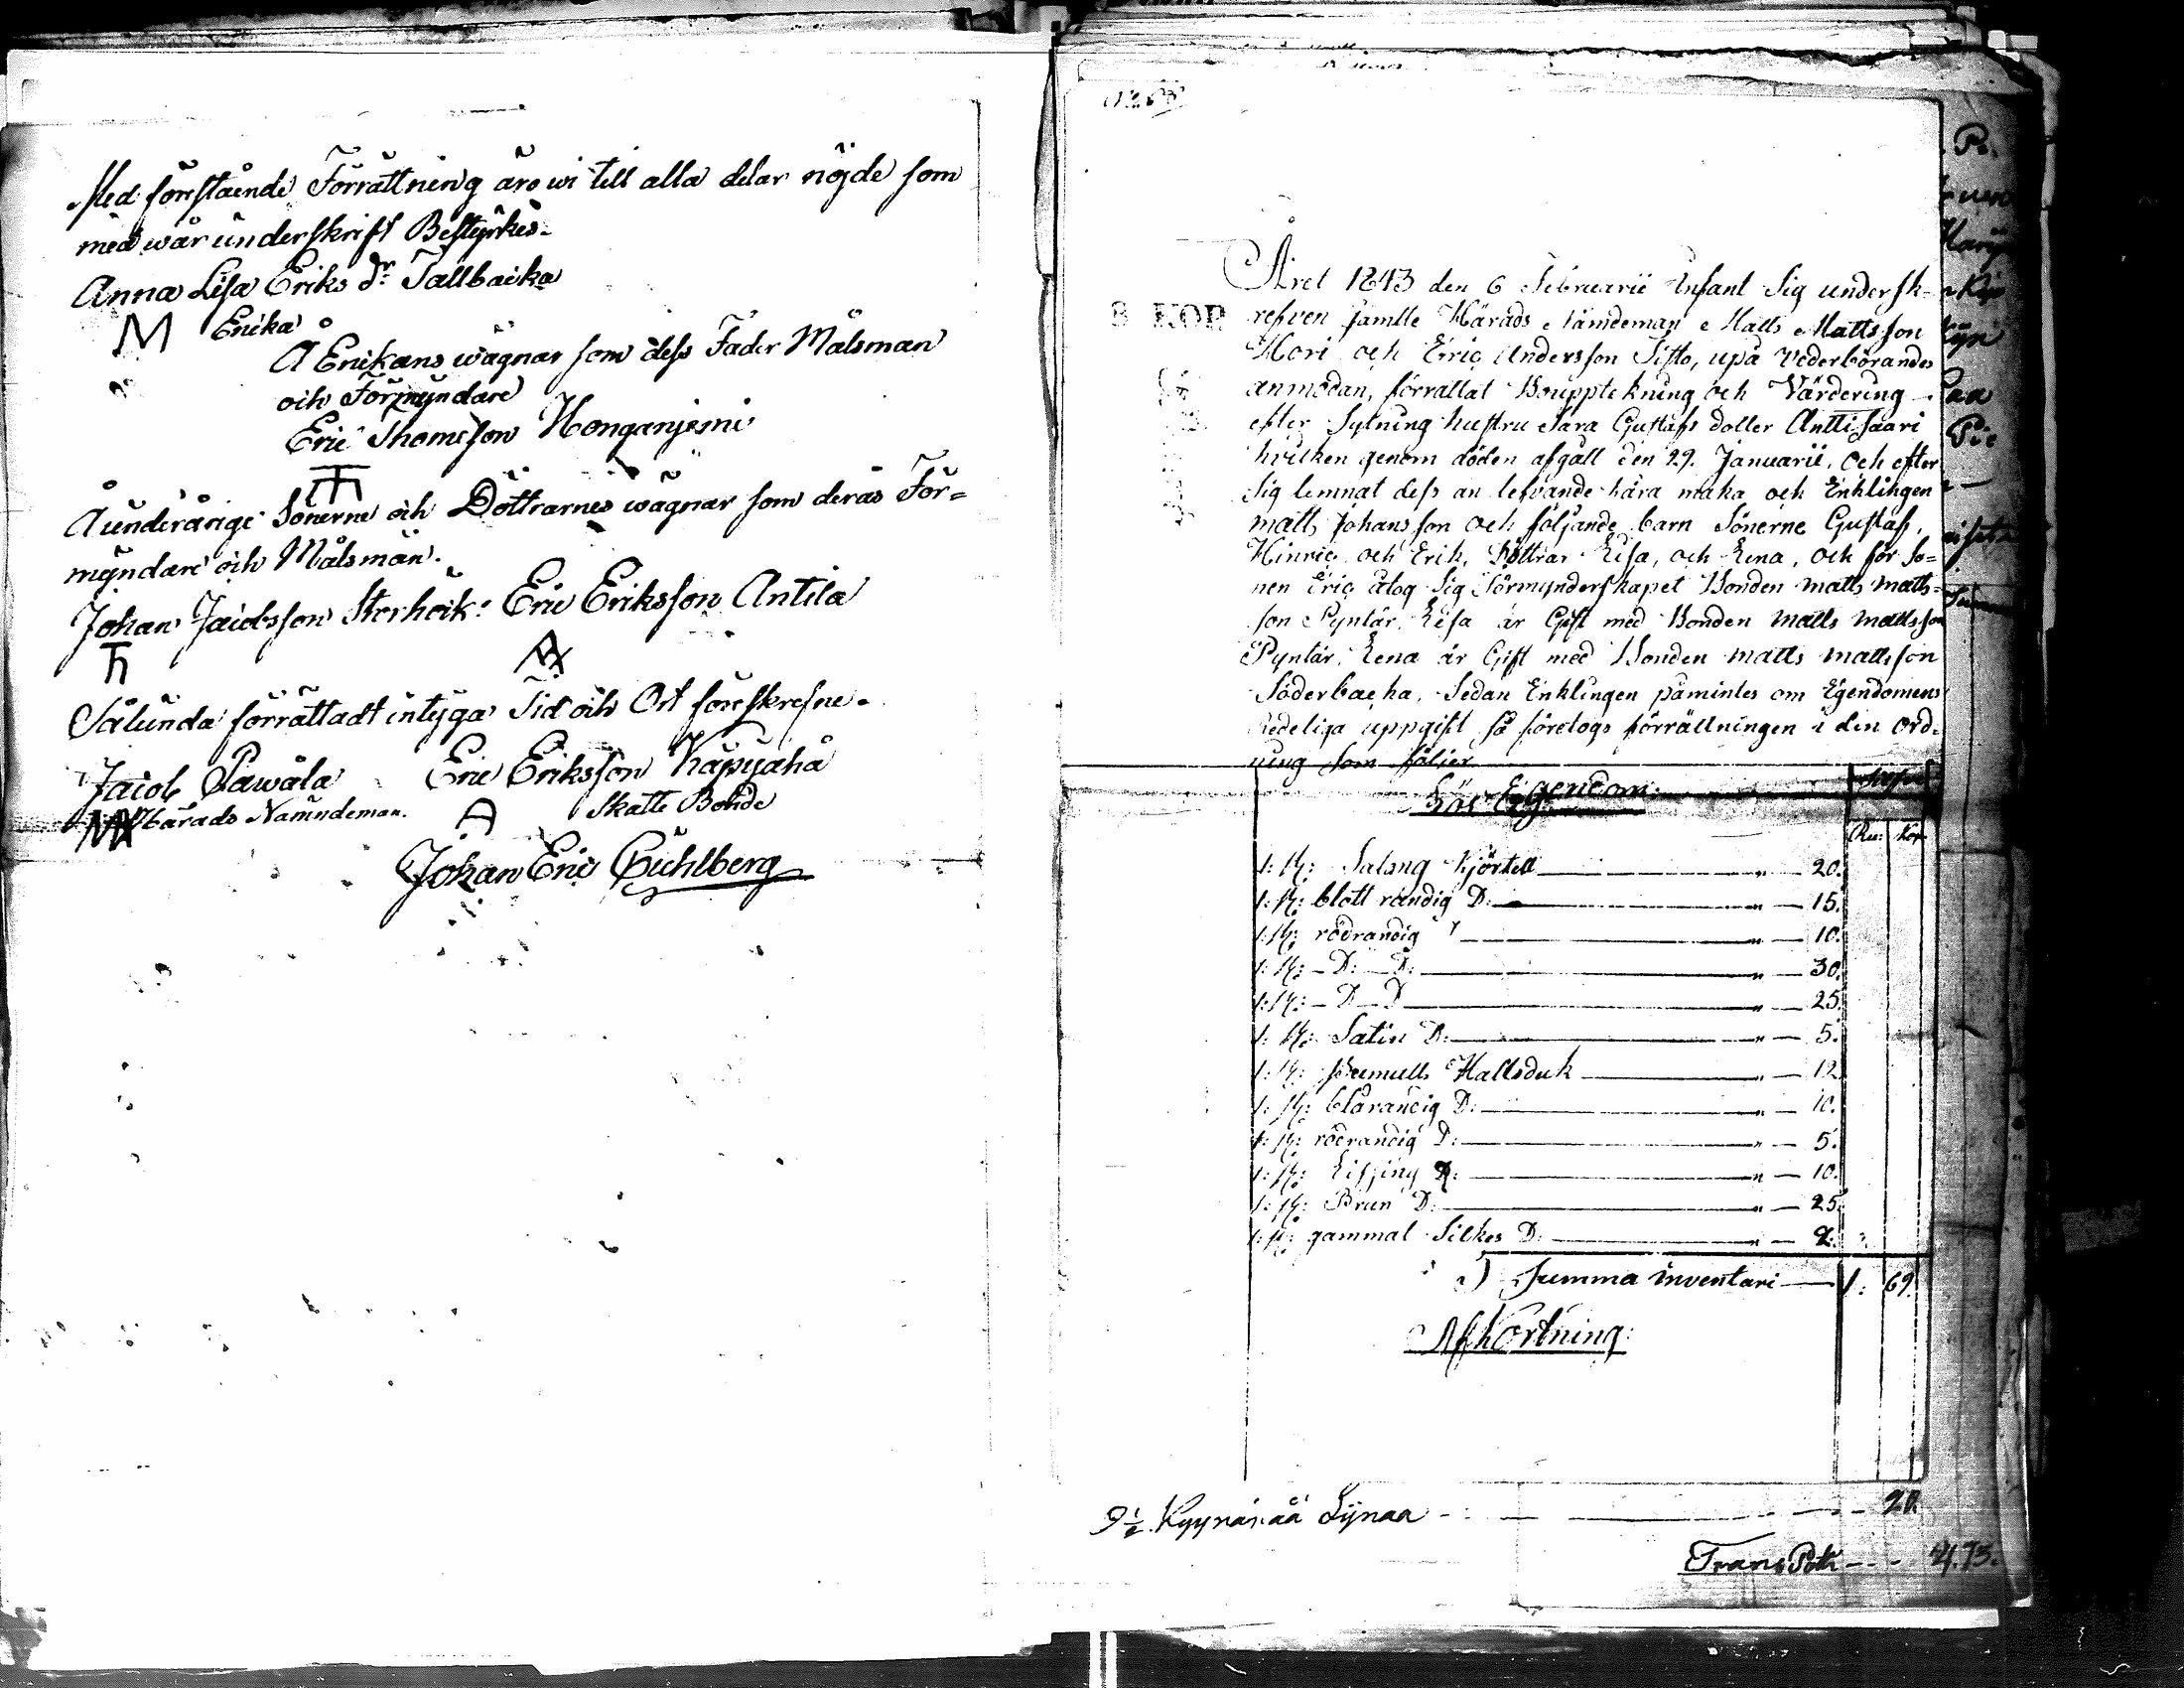 Med förestående Förrättning äro wi till alla delar nöjde som
med wår underskrift Bestyrkes.
Anna Lisa Eriks dr Tallbacka
M Erika
Å Erikans wägnar som dess Fader Målsman
och Förmyndare
Eric Thomesson Honganjemi
Å underårige Sönerne och Döttrarnes wägnar som deras För=
myndare och Målsmän.
Johan Jacobsson Eric Eriksson Antila
Sålunda förrättadt intyga Tid och Ort föreskrefne.
Jacob Pawåla Eric Eriksson Käpyahå
Härads Nämndeman. A Skatte Bonde
Johan Eric
Året 1843 den 6 Februarii Infant Sig undersk-
8 KOP. refven jämtte Härads Nämdeman Matts Mattsson
Hori och Eric Andersson Sisto, upå vederbörandes
anmodan, förrattat Boupptekning och Värdering
efter Sytning hustru Sara Gustafs dotter Anttisaari
hvilken genom döden afgått den 29. Januarii. Och efter
Sig lemnat dess än lefvande kära maka och Enklingen
matts Johansson och följande barn Sönerne Gustaf,
Hinric och Erik, Döttrar Lisa, och Lena, och för So=
nen Eric åtog Sig Förmynderskapet Bonden matts matts=
son Pyntär. Lisa är Gift med Bonden matts mattsson
Pyntär. Lena är Gift med Bonden matts mattsson
Söderbacka. Sedan Enklingen påmintes om Egendomens
Redeliga uppgift så företogs förrättningen i din ord-
ning som följer
Lös Egendom:
Ru: Kop
1: st: Salong Kjörtell " 20.
1: st: blått randig D: " 15.
1: st: rödrandig " 10.
1: st: D: D: " 30.
1: st: D D " 25.
1: st: Satin D: " 5.
1: st: Hallsduk " 12
1: st: blårandig D: " 10.
1: st: rödrandig D: " 5.
1: st: D: " 10.
1: st: Brun D: " 25.
1: st: gammal Silkes D: " 2.
Summa inventari 1: 69.
Afkortning:
9 1/2 Kyynärää Lijnaa 20.
4.73.